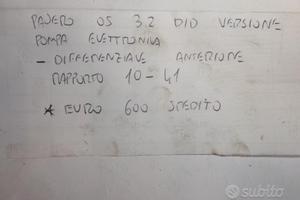 PAJERO 05 3.2 DID VERSIONE
POMPA ELETTRONICA
- DIFFERENZIALE ANTERIORE
RAPPORTO 10-41
* EURO 600 SPEDITO
subito